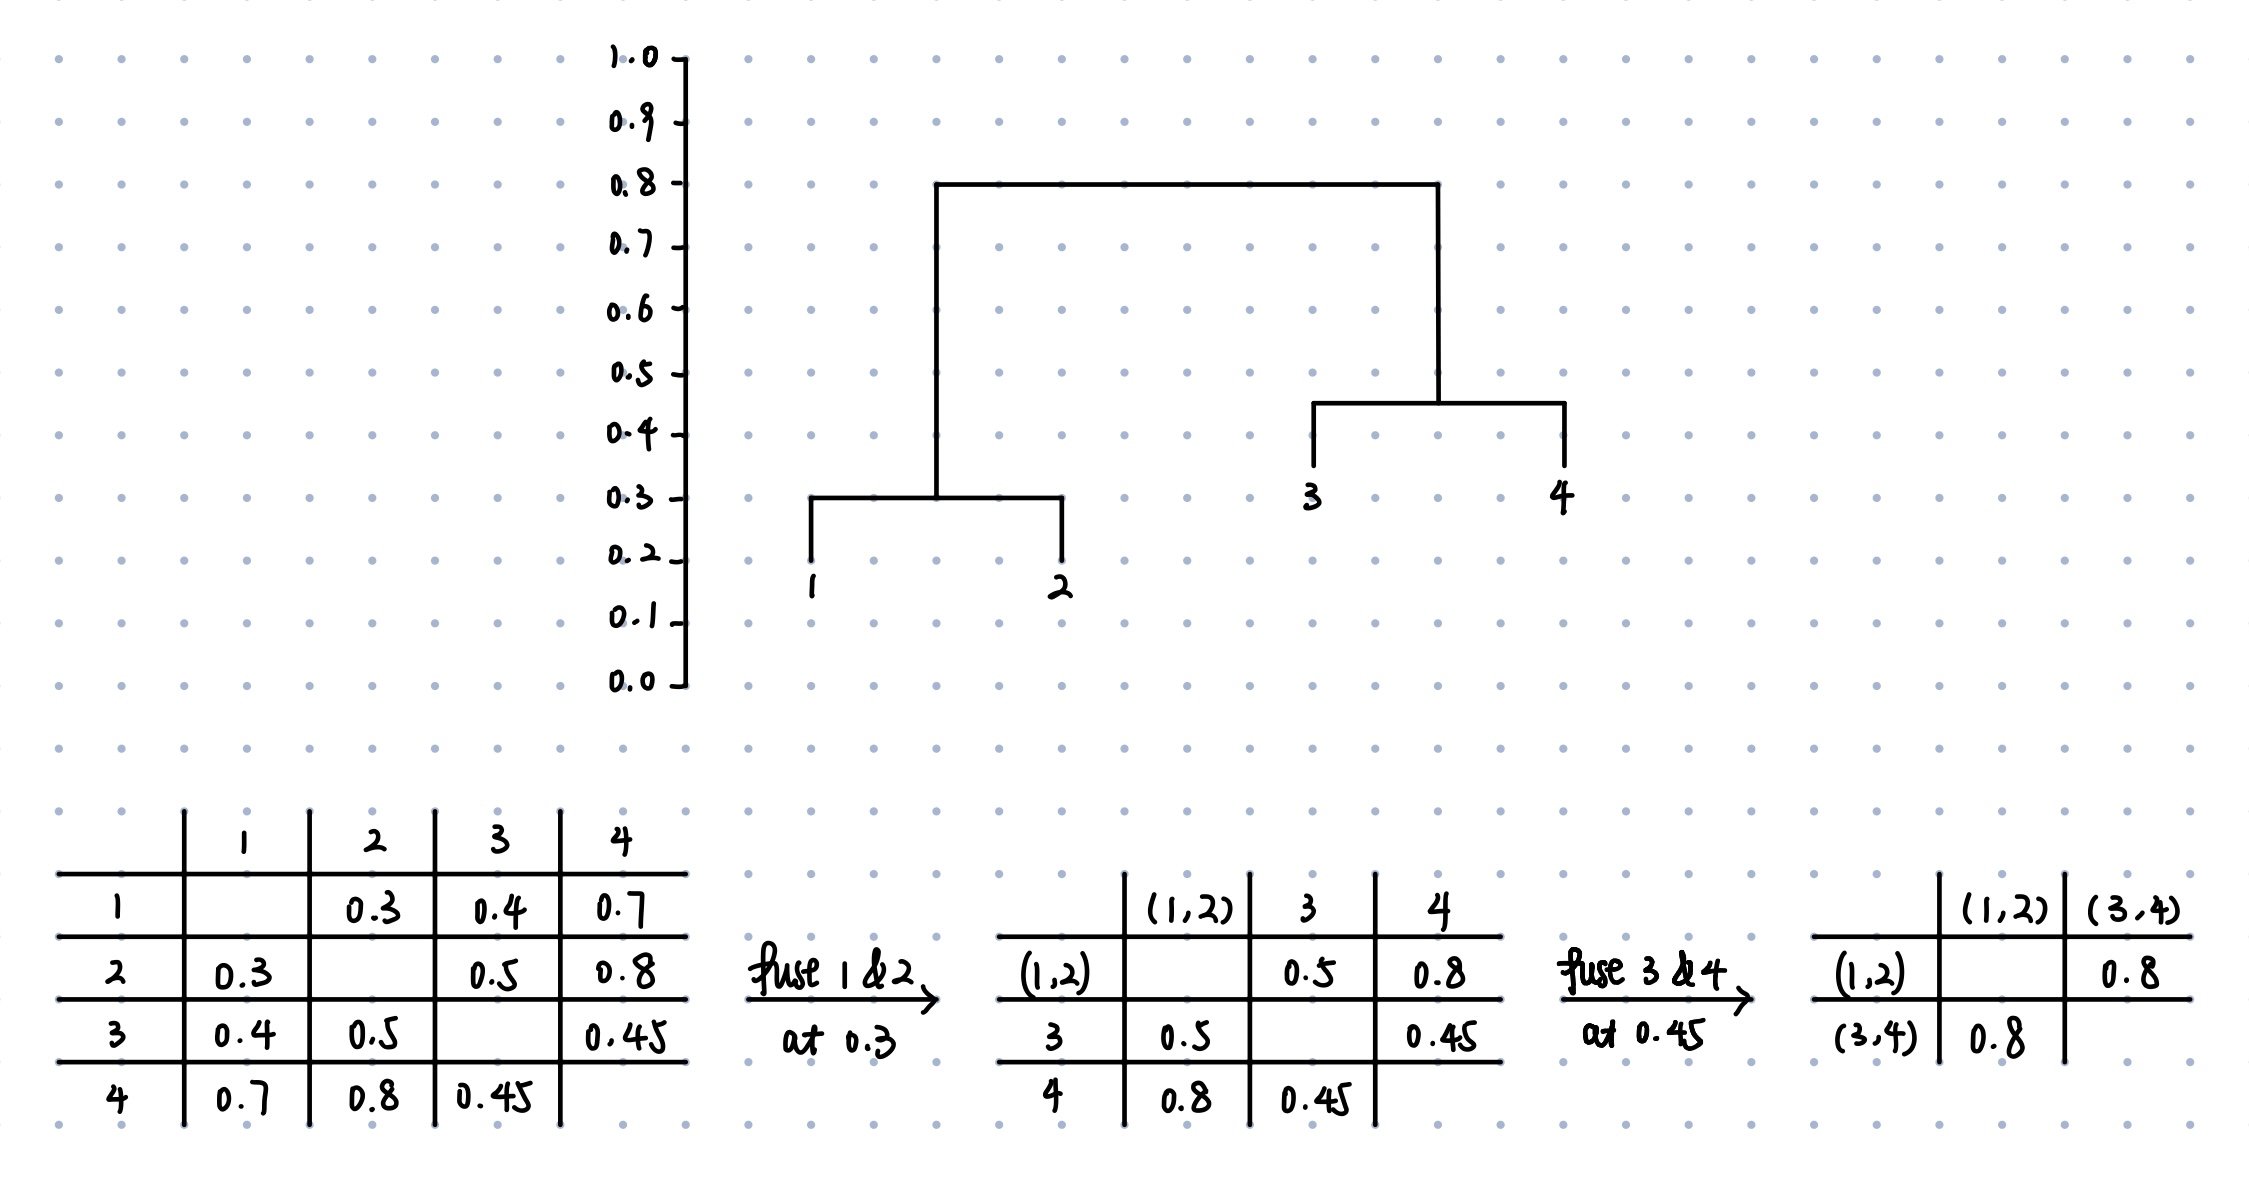 1.0
0.9
0.8
0.7
0.6
0.5
0.4
0.3
0.2
0.1
0.0
3 4
1 2
1 2 3 4
1 0.3 0.4 0.7
2 0.3 0.5 0.8
3 0.4 0.5 0.45
4 0.7 0.8 0.45
fuse 1 & 2
at 0.3
(1,2) 3 4
(1,2) 0.5 0.8
3 0.5 0.45
4 0.8 0.45
fuse 3 & 4
at 0.45
(1,2) (3,4)
(1,2) 0.8
(3,4) 0.8